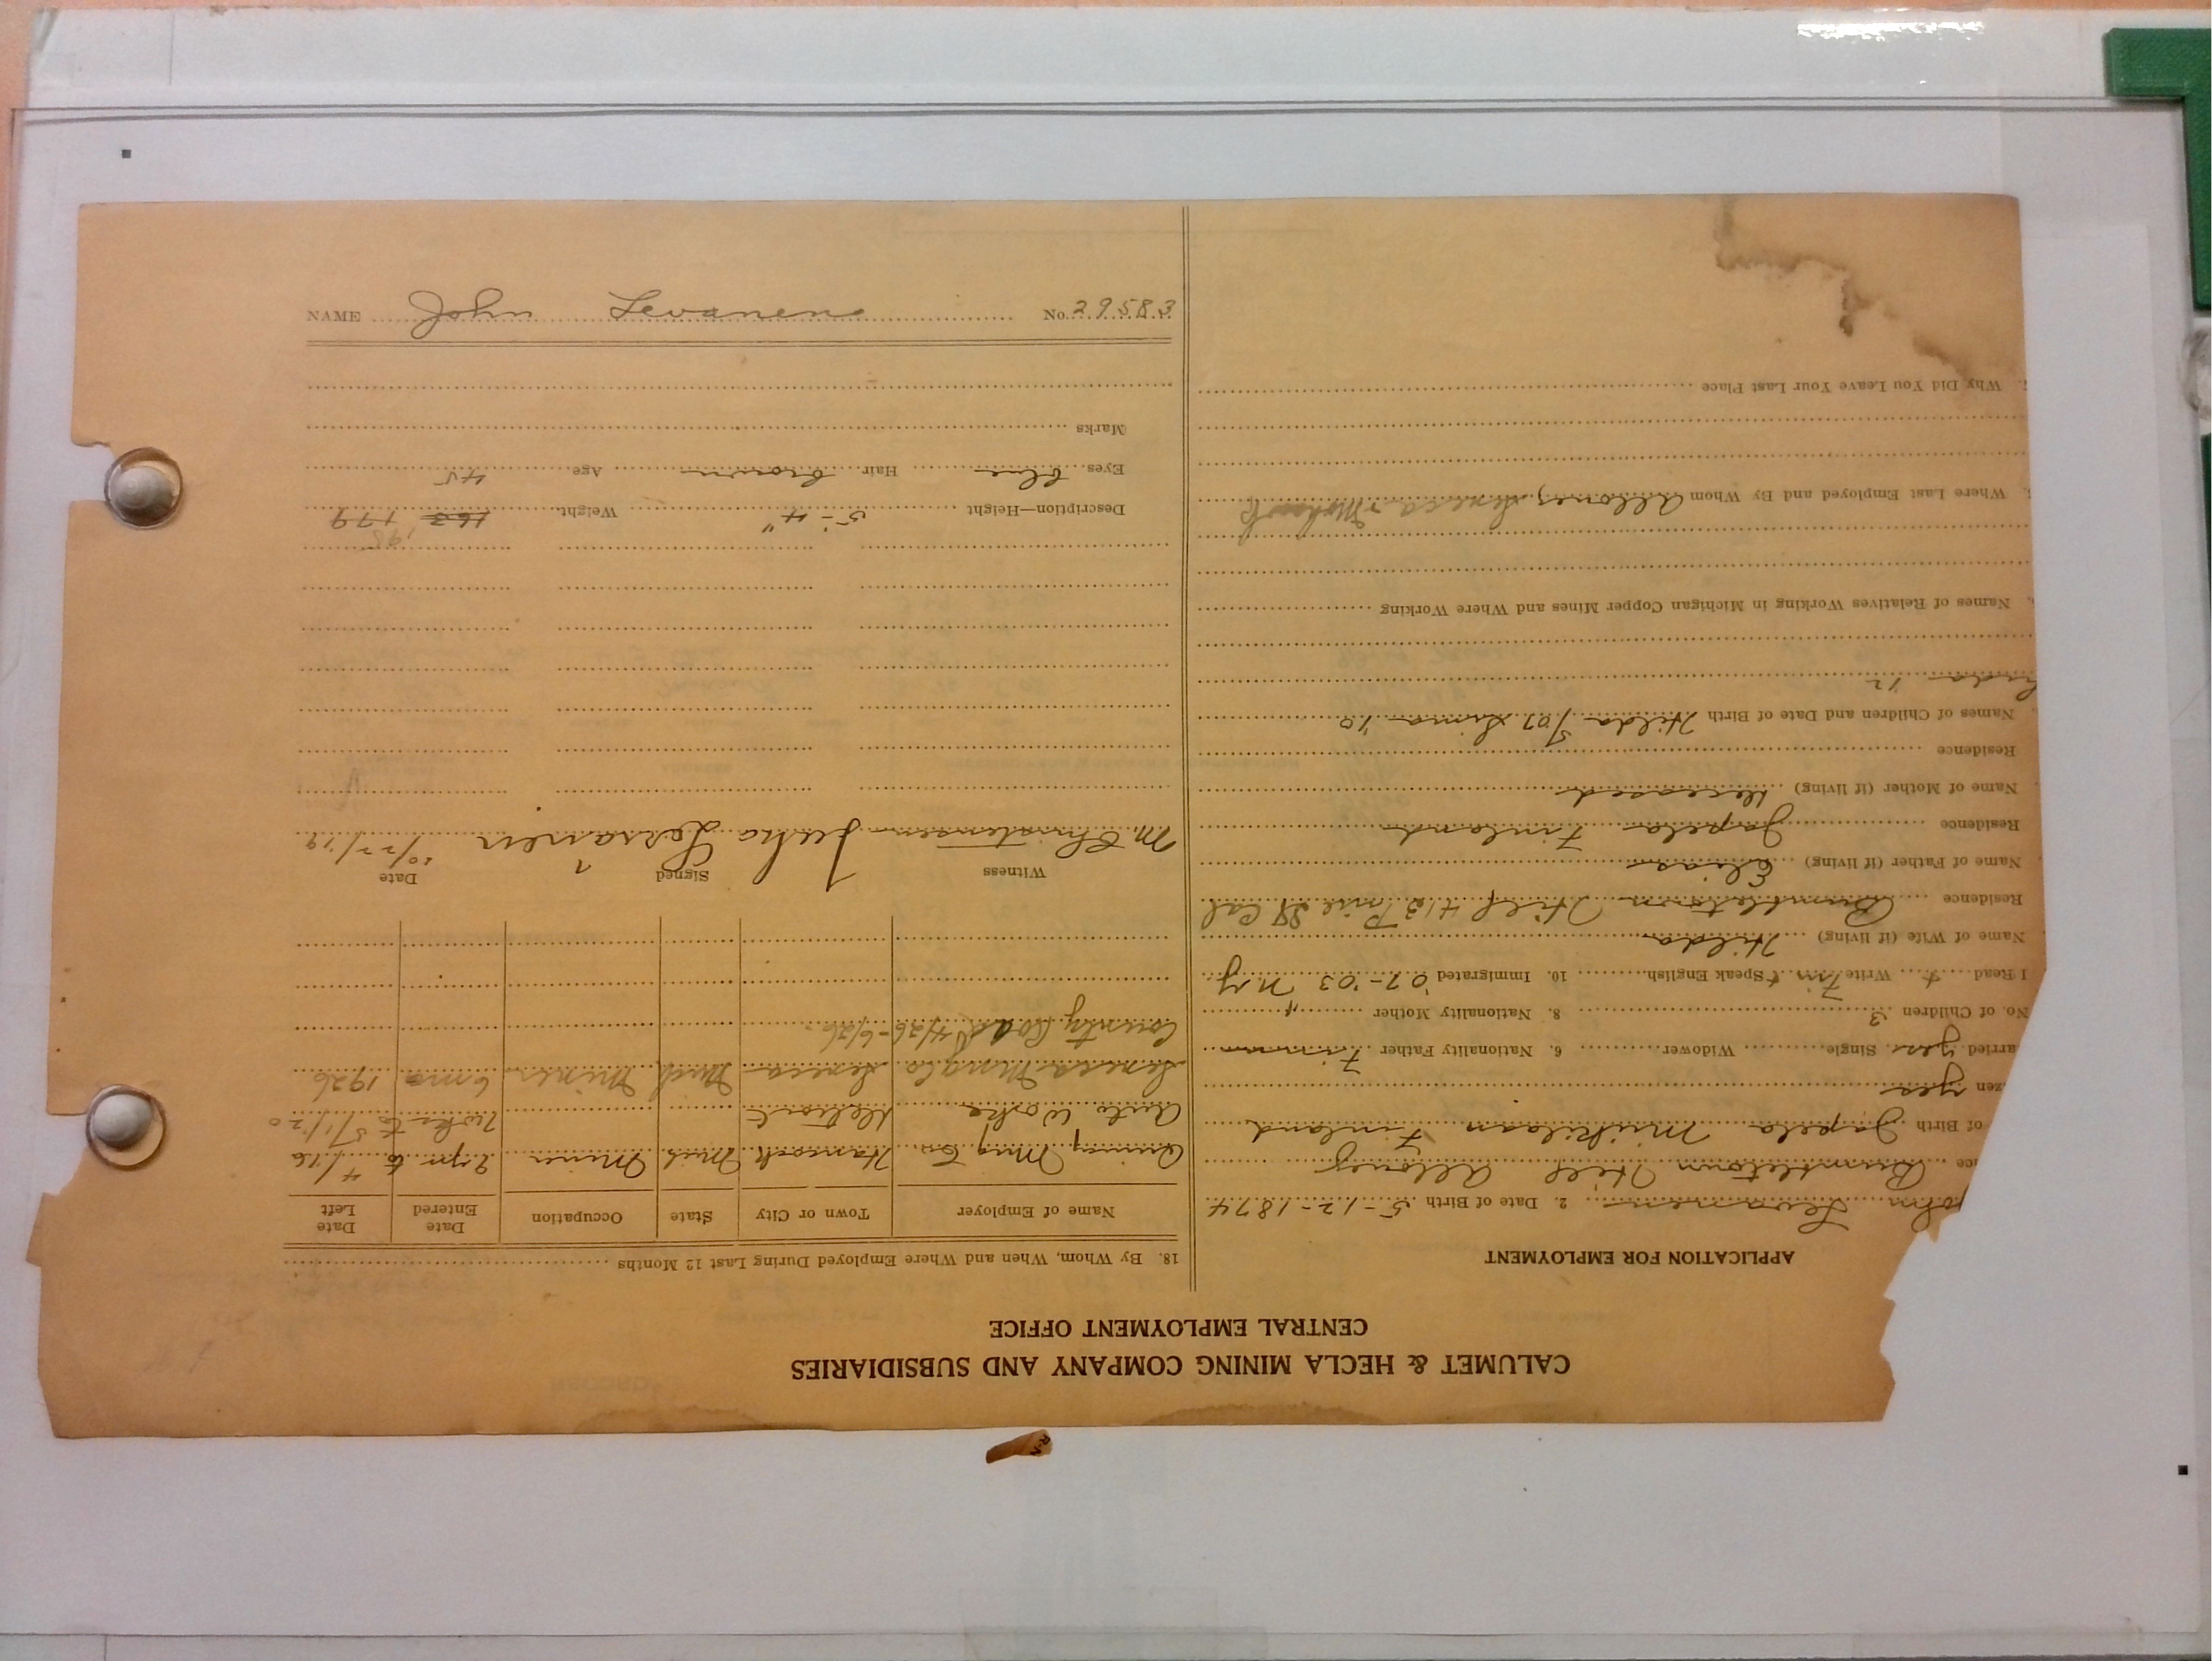 CALUMET & HECLA MINING COMPANY AND SUBSIDIARIES
CENTRAL EMPLOYMENT OFFICE
APPLICATION FOR EMPLOYMENT
John Levanen 2. Date of Birth 5-12-1874
Bumbletown Hill Allouez
of Birth Japela Finland
zen yes
arried yes Single Widower 6. Nationality Father Finn
No. of Children 3 8. Nationality Mother "
I Read Write Finn Speak English 10. Immigrated '07-'03 N.Y.
Name of Wife (if living) Hilda
Residence Bumbletown Hill 413 Pine St Cal
Name of Father (if living) Elias
Residence Japela Finland
Name of Mother (if living) deceased
Residence
Names of Children and Date of Birth Hilda '07 '10
'12
Names of Relatives Working in Michigan Copper Mines and Where Working
Where Last Employed and By Whom Allouez, Seneca & Mohawk
Why Did You Leave Your Last Place
18. By Whom, When and Where Employed During Last 12 Months
Name of Employer Town or City State Occupation Date Entered Date Left
Quincy Mng Co. Hancock Mich Miner 2 yrs to 4/16
Auto Works Detroit 2 wks to 5/1/20
Seneca Mng Co Seneca Mich Miner 6 mo 1926
County Road 4/26-6/26
Witness Signed Date
M. Christensen Juho Levanen 10/22/19
198
Description—Height 5'-4" Weight 163 179
Eyes blue Hair brown Age 45
Marks
NAME John Levanen No. 29583
R-N